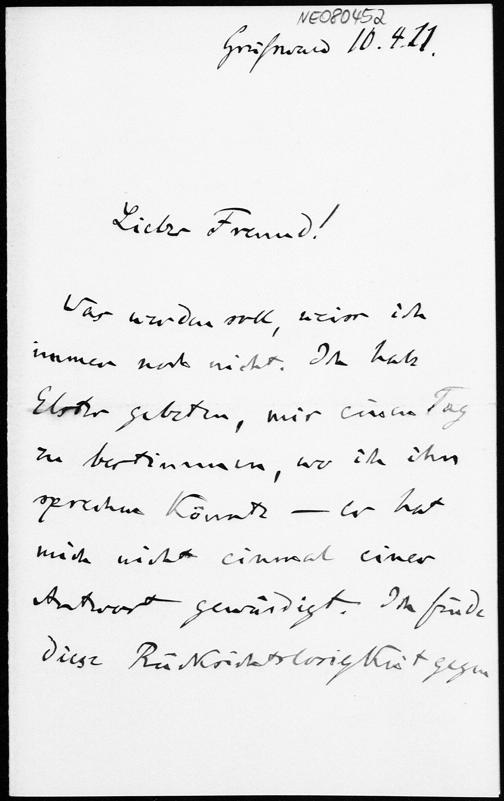 NE080452
Greifswald 10.4.11.
Lieber Freund!
Was werden soll, weiss ich
immer noch nicht. Ich habe
Elster gebeten, mir einen Tag
zu bestimmen, wo ich ihn
sprechen könnte — er hat
mich nicht einmal einer
Antwort gewürdigt. Ich finde
diese Rücksichtslosigkeit gegen